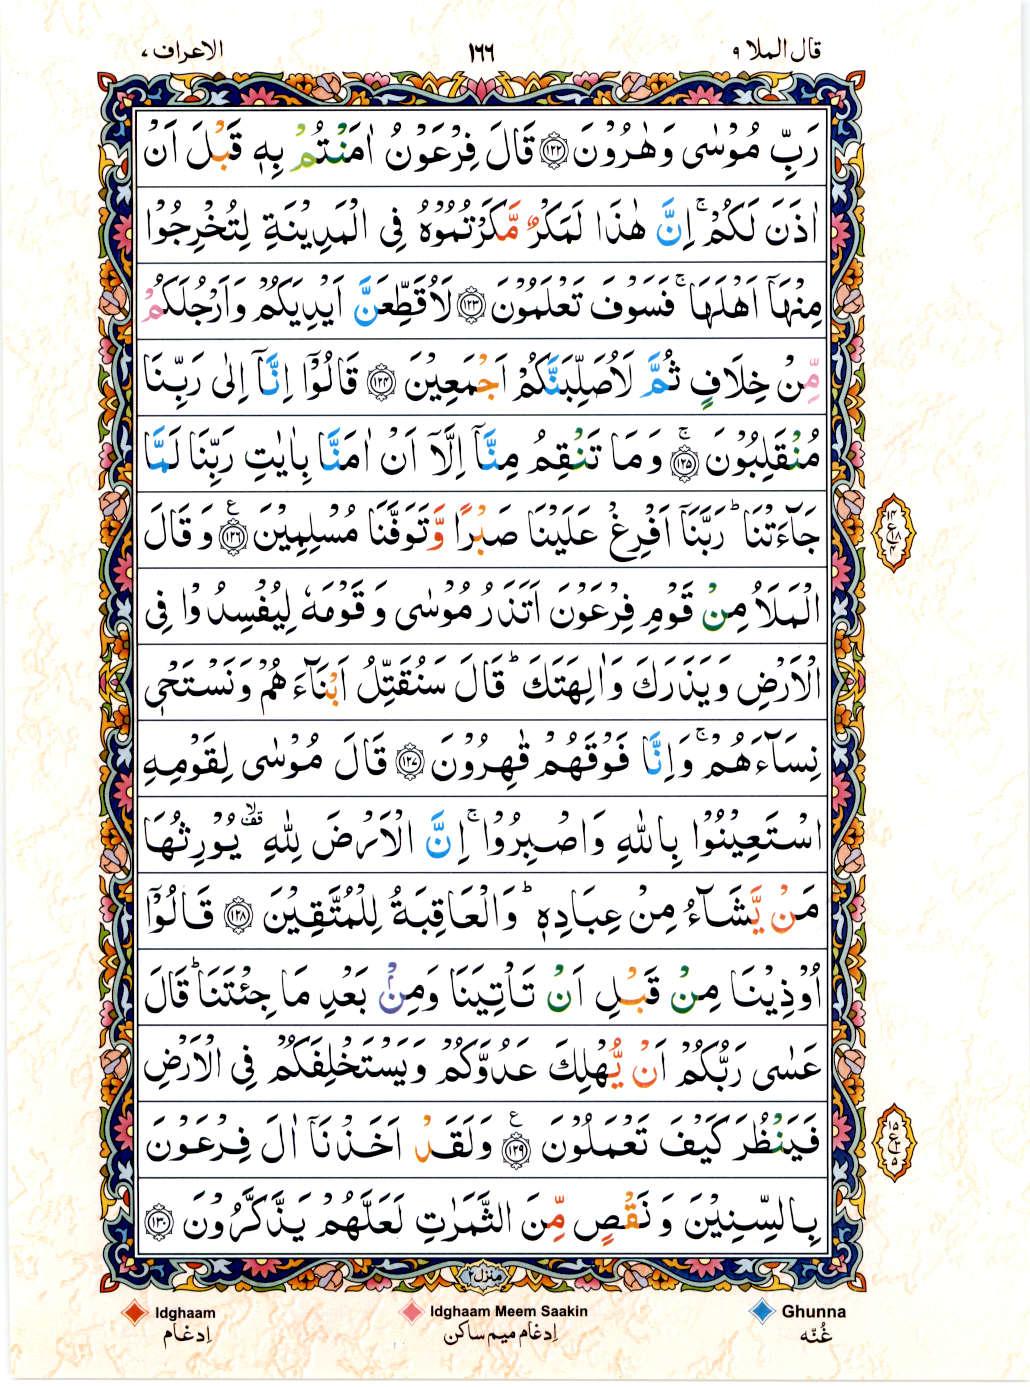 الاعراف ۷ ۱۶۶ قال الملا ۹
رَبِّ مُوْسٰى وَهٰرُوْنَ ۝۱۲۲ قَالَ فِرْعَوْنُ اٰمَنْتُمْ بِهٖ قَبْلَ اَنْ
اٰذَنَ لَكُمْ ۚ اِنَّ هٰذَا لَمَكْرٌ مَّكَرْتُمُوْهُ فِى الْمَدِيْنَةِ لِتُخْرِجُوْا
مِنْهَاۤ اَهْلَهَا ۚ فَسَوْفَ تَعْلَمُوْنَ ۝۱۲۳ لَاُقَطِّعَنَّ اَيْدِيَكُمْ وَاَرْجُلَكُمْ
مِّنْ خِلَافٍ ثُمَّ لَاُصَلِّبَنَّكُمْ اَجْمَعِيْنَ ۝۱۲۴ قَالُوْۤا اِنَّاۤ اِلٰى رَبِّنَا
مُنْقَلِبُوْنَ ۝۱۲۵ ۚ وَمَا تَنْقِمُ مِنَّاۤ اِلَّاۤ اَنْ اٰمَنَّا بِاٰيٰتِ رَبِّنَا لَمَّا
جَآءَتْنَا ؕ رَبَّنَاۤ اَفْرِغْ عَلَيْنَا صَبْرًا وَّتَوَفَّنَا مُسْلِمِيْنَ ۝۱۲۶ ع وَقَالَ
الْمَلَاُ مِنْ قَوْمِ فِرْعَوْنَ اَتَذَرُ مُوْسٰى وَقَوْمَهٗ لِيُفْسِدُوْا فِى
الْاَرْضِ وَيَذَرَكَ وَاٰلِهَتَكَ ؕ قَالَ سَنُقَتِّلُ اَبْنَآءَهُمْ وَنَسْتَحْىٖ
نِسَآءَهُمْ ۚ وَاِنَّا فَوْقَهُمْ قٰهِرُوْنَ ۝۱۲۷ قَالَ مُوْسٰى لِقَوْمِهِ
اسْتَعِيْنُوْا بِاللّٰهِ وَاصْبِرُوْا ۚ اِنَّ الْاَرْضَ لِلّٰهِ ۙقف يُوْرِثُهَا
مَنْ يَّشَآءُ مِنْ عِبَادِهٖ ؕ وَالْعَاقِبَةُ لِلْمُتَّقِيْنَ ۝۱۲۸ قَالُوْۤا
اُوْذِيْنَا مِنْ قَبْلِ اَنْ تَاْتِيَنَا وَمِنْۢ بَعْدِ مَا جِئْتَنَا ؕ قَالَ
عَسٰى رَبُّكُمْ اَنْ يُّهْلِكَ عَدُوَّكُمْ وَيَسْتَخْلِفَكُمْ فِى الْاَرْضِ
فَيَنْظُرَ كَيْفَ تَعْمَلُوْنَ ۝۱۲۹ ع وَلَقَدْ اَخَذْنَاۤ اٰلَ فِرْعَوْنَ
بِالسِّنِيْنَ وَنَقْصٍ مِّنَ الثَّمَرٰتِ لَعَلَّهُمْ يَذَّكَّرُوْنَ ۝۱۳۰
منزل ۲
Idghaam Idghaam Meem Saakin Ghunna
اِدغام اِدغام میم ساکن غُنّه